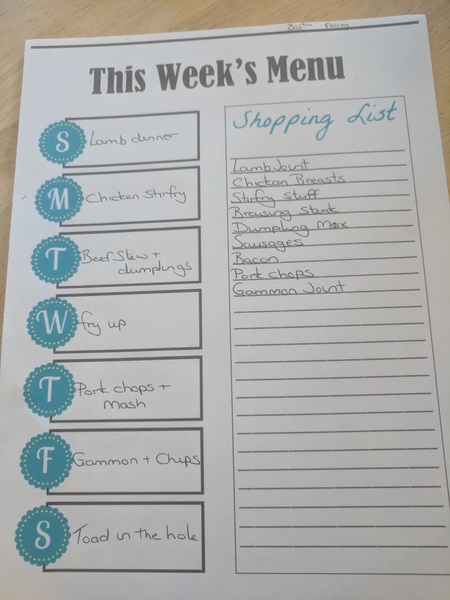 Aug
This Week's Menu
S
Lamb dinner
M
Chicken Stirfry
T
Beef Stew +
dumplings
W
fry up
T
Pork chops +
Mash
F
Gammon + Chips
S
Toad in the hole
Shopping List
Lamb Joint
Chicken Breasts
Stirfry stuff
Braising Steak
Dumpling Mix
Sausages
Bacon
Pork chops
Gammon Joint